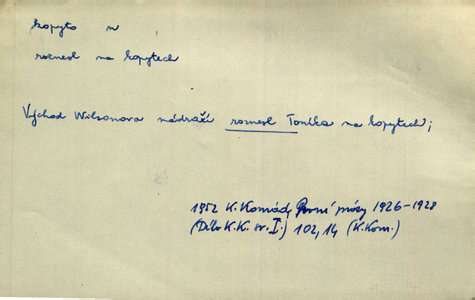 kopyto n
roznesl na kopytech
Východ Wilsonova nádraží roznesl Toníka na kopytech;
1952 K. Konrád, První prózy 1926-1928
(Dílo K.K. sv. I.) 102, 14 (K.Kom.)